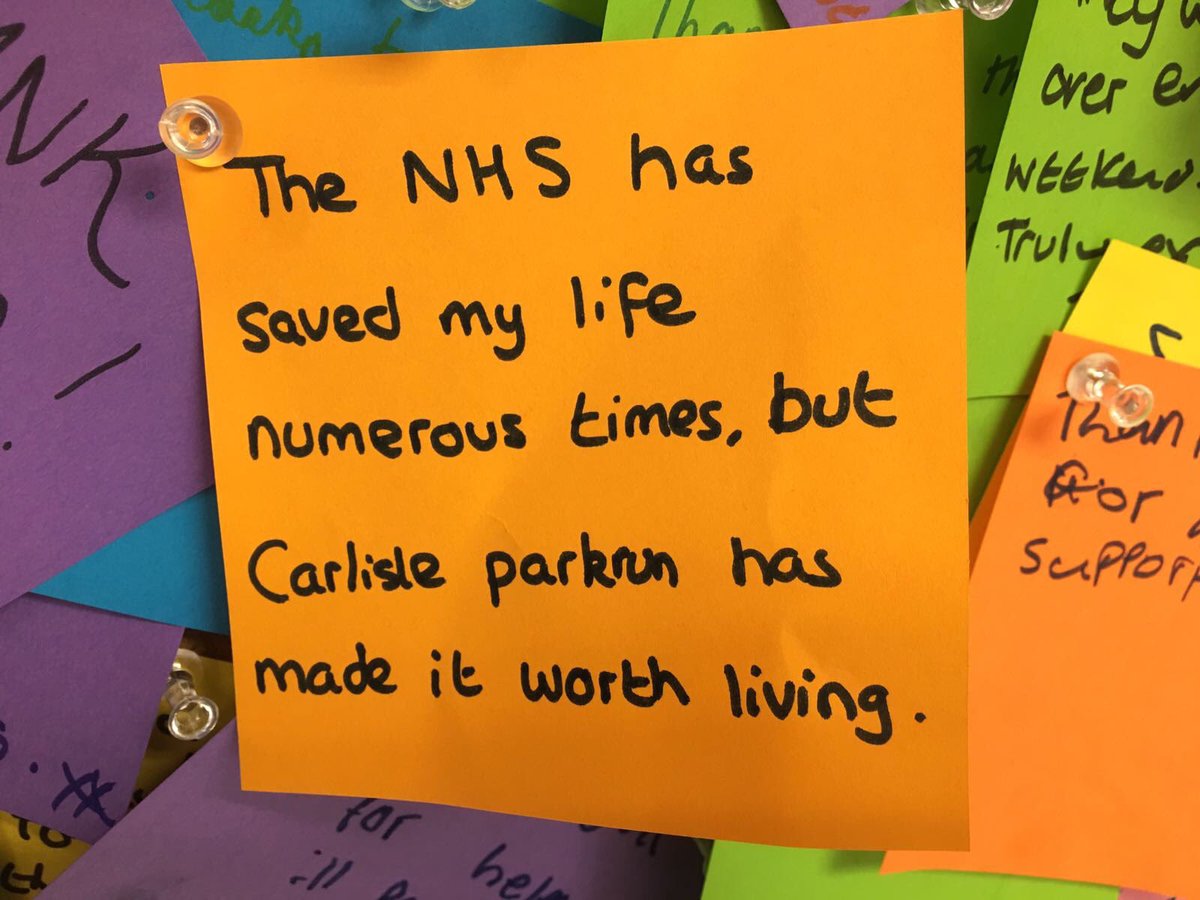 The NHS has
saved my life
numerous times, but
Carlisle parkrun has
made it worth living.
NK
over
WEEKend.
Truly
for
support
for
help
ill